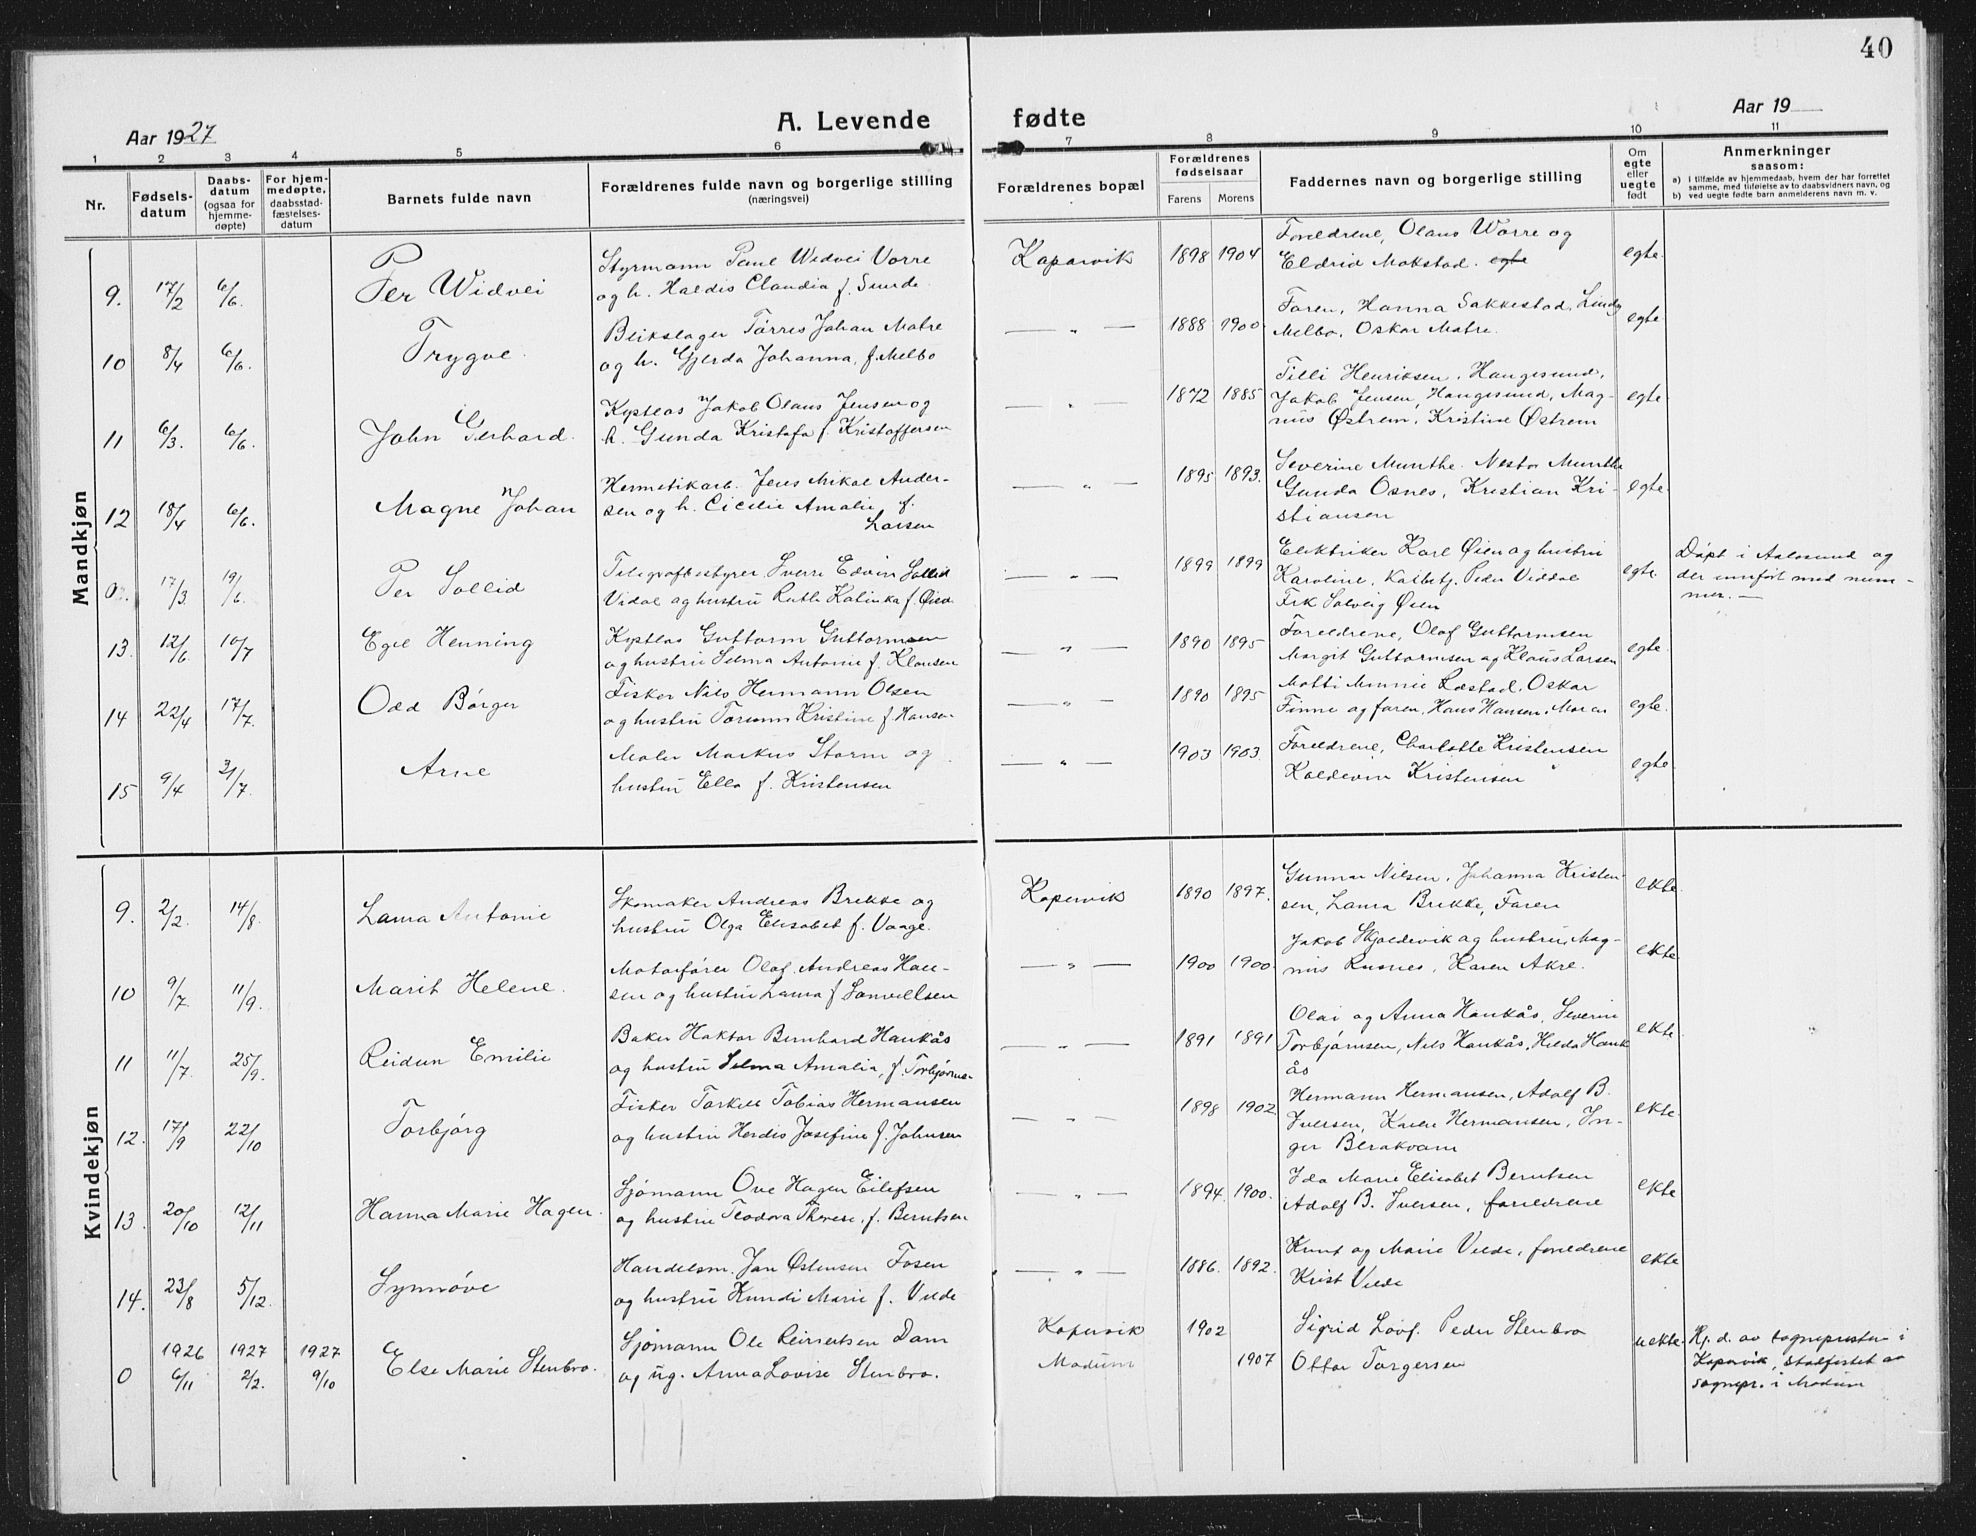 40
Aar 1927
A. Levende fødte
Aar 19
1 2 3 4 5 6 7 8 9 10 11
Nr.
Fødsels-
datum
Daabs-
datum
(ogsaa for
hjemme-
døpte)
For hjem-
medøpte,
daabsstad-
fæstelses-
datum
Barnets fulde navn
Forældrenes fulde navn og borgerlige stilling
(næringsvei)
Forældrenes bopæl
Forældrenes
fødselsaar
Farens Morens
Faddernes navn og borgerlige stilling
Om
egte
eller
uegte
født
Anmerkninger
saasom:
a) i tilfælde av hjemmedaab, hvem der har forrettet
samme, med tilføielse av to daabsvidners navn, og
b) ved uegte fødte barn anmelderens navn m. v.
Mandkjøn
9. 17/2 6/6. Per Widvei
Styrmann Paul Widvei Vorre
og h. Haldis Claudia f. Sunde.
Kopervik 1898 1904
Foreldrene, Olaus Worre og
Eldrid Mokstad. egte
egte.
10 8/4 6/6. Trygve.
Blikslager Tørres Johan Matre
og h. Gjerda Johanna, f. Melbo
— " — 1888 1900.
Faren, Hanna Sakkestad,
Melbo, Oskar Matre.
egte
11 6/3. 6/6. John Gerhard.
Kystlos Jakob Olaus Jensen og
h. Gunda Kristofa f. Kristoffersen
— " — 1872 1885
Tilli Henriksen, Haugesund,
Jakob Jensen, Haugesund, Mag-
nus Østrem, Kristine Østrem
egte
12 18/4 6/6. Magne Johan
Hermetikarb. Jens Mikal Ander-
sen og h. Cicilie Amalie f.
Larsen
— " — 1895 1893.
Severine Munthe. Nestor Munthe
Gunda Osnes, Kristian Kri-
stiansen
egte.
0. 17/3 19/6 Per Sollid
Telegrafbestyrer Sverre Edvin Sollid
Vidal og hustru Ruth Kalinka f. Øien
— " — 1899 1899
Elektriker Karl Øien og hustru
Karoline, Peder Viddal
Frk Solveig Øien
egte.
Døpt i Aalesund og
der innført med num-
mer. —
13. 12/6 10/7 Egil Henning
Kystlos Guttorm Guttormsen
og hustru Selma Antonie f. Klausen
— " — 1890 1895
Foreldrene, Olaf Guttormsen
Margit Guttormsen og Klaus Larsen
egte.
14 22/4 17/7. Odd Børger
Fisker Nils Hermann Olsen
og hustru Torunn Kristine f. Hansen
— " — 1890 1895
Motti Minnie Løstad, Oskar
Finne og faren, Hans Hansen, Moren
egte.
15 9/4 31/7. Arne
Maler Markus Storm og
hustru Ella f. Kristensen
— " — 1903 1903.
Foreldrene, Charlotte Kristensen
Koldevin Kristensen
egte
Kvindekjøn
9. 2/2. 14/8. Laura Antonie
Skomaker Andreas Brekke og
hustru Olga Elisabet f. Vaage.
Kopervik 1890 1897.
Gunnar Nilsen, Johanna Kristen-
sen, Laura Brekke, Faren
ekte.
10 9/7 11/9. Marit Helene.
Motorfører Olaf Andreas Han-
sen og hustru Laura f.
— " — 1900 1900.
Jakob Skjoldevik og hustru, Mag-
nus Rusnes, Karen Akre.
ekte.
11 11/7 25/9. Reidun Emilie
Baker Haktor Bernhard Haukås
og hustru Selma Amalia, f. Torbjørnse-
— " — 1891 1891
Olai og Anna Haukås, Severin
Torbjørnsen, Nils Haukås, Hilda Hauk-
ås
ekte.
12. 17/9 22/10 Torbjørg
Fisker Torkell Tobias Hermansen
og hustru Herdis Josefine f. Johnsen
— " — 1898 1902
Hermann Hermansen, Adolf B.
Iversen, Karen Hermansen, In-
ger Berakvam
ekte.
13. 20/10 12/11 Hanna Marie Hagen.
Sjømann Ove Hagen Eilefsen
og hustru Teodora Therese, f. Berntsen
— " — 1894. 1900.
Ida Marie Elisabet Berntsen
Adolf B. Iversen, foreldrene
ekte
14. 23/8 5/12. Synnøve
Handelsm. Jan Østensen Fosen
og hustru Kundi Marie f. Velde
— " — 1886. 1892.
Knut og Marie Velde, foreldrene
Krist Velde
ekte
0 1926 6/11 1927 2/2. 1927 9/10 Else Marie Stenbro.
Sjømann Ole Reinertsen Dam
og ug. Anna Lovise Stenbro.
Kopervik 1902
Modum 1907
Sigrid Løvf. Peder Stenbro
Ottar Torgersen
uekte.
Hj. d. av sogneprsten i
Kopervik, stadfestet av
sognepr. i Modum